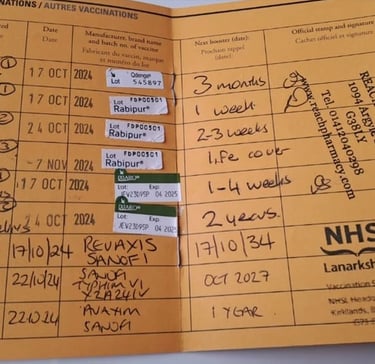 NATIONS / AUTRES VACCINATIONS
Date
Date
Manufacturer, brand name
and batch no. of vaccine
Fabricant du vaccin, marque
et numéro du lot
Next booster (date):
Prochain rappel
(date):
Official stamp and signature
Cachet officiel et signature
17 OCT 2024
Qdenga
Lot 545897
3 months
17 OCT 2024
Lot FDP00501
Rabipur
1 week
24 OCT 2024
Lot FDP00501
Rabipur
2-3 weeks
-7 NOV 2024
Lot FDP00501
Rabipur
Life cover
17 OCT 2024
Lot: Exp:
JEV23D95P 04 2025
1-4 weeks
24 OCT 2024
Lot: Exp:
JEV23D95P 04 2025
2 years.
17/10/24
REVAXIS
SANOFI
17/10/34
22/10/24
SANOFI
TYPHIM VI
OCT 2027
22.10.24
AVAXIM
SANOFI
1 YEAR
G38LY
www.reachpharmacy.com
NHS
Lanarksh
Vaccination
Kirklands,